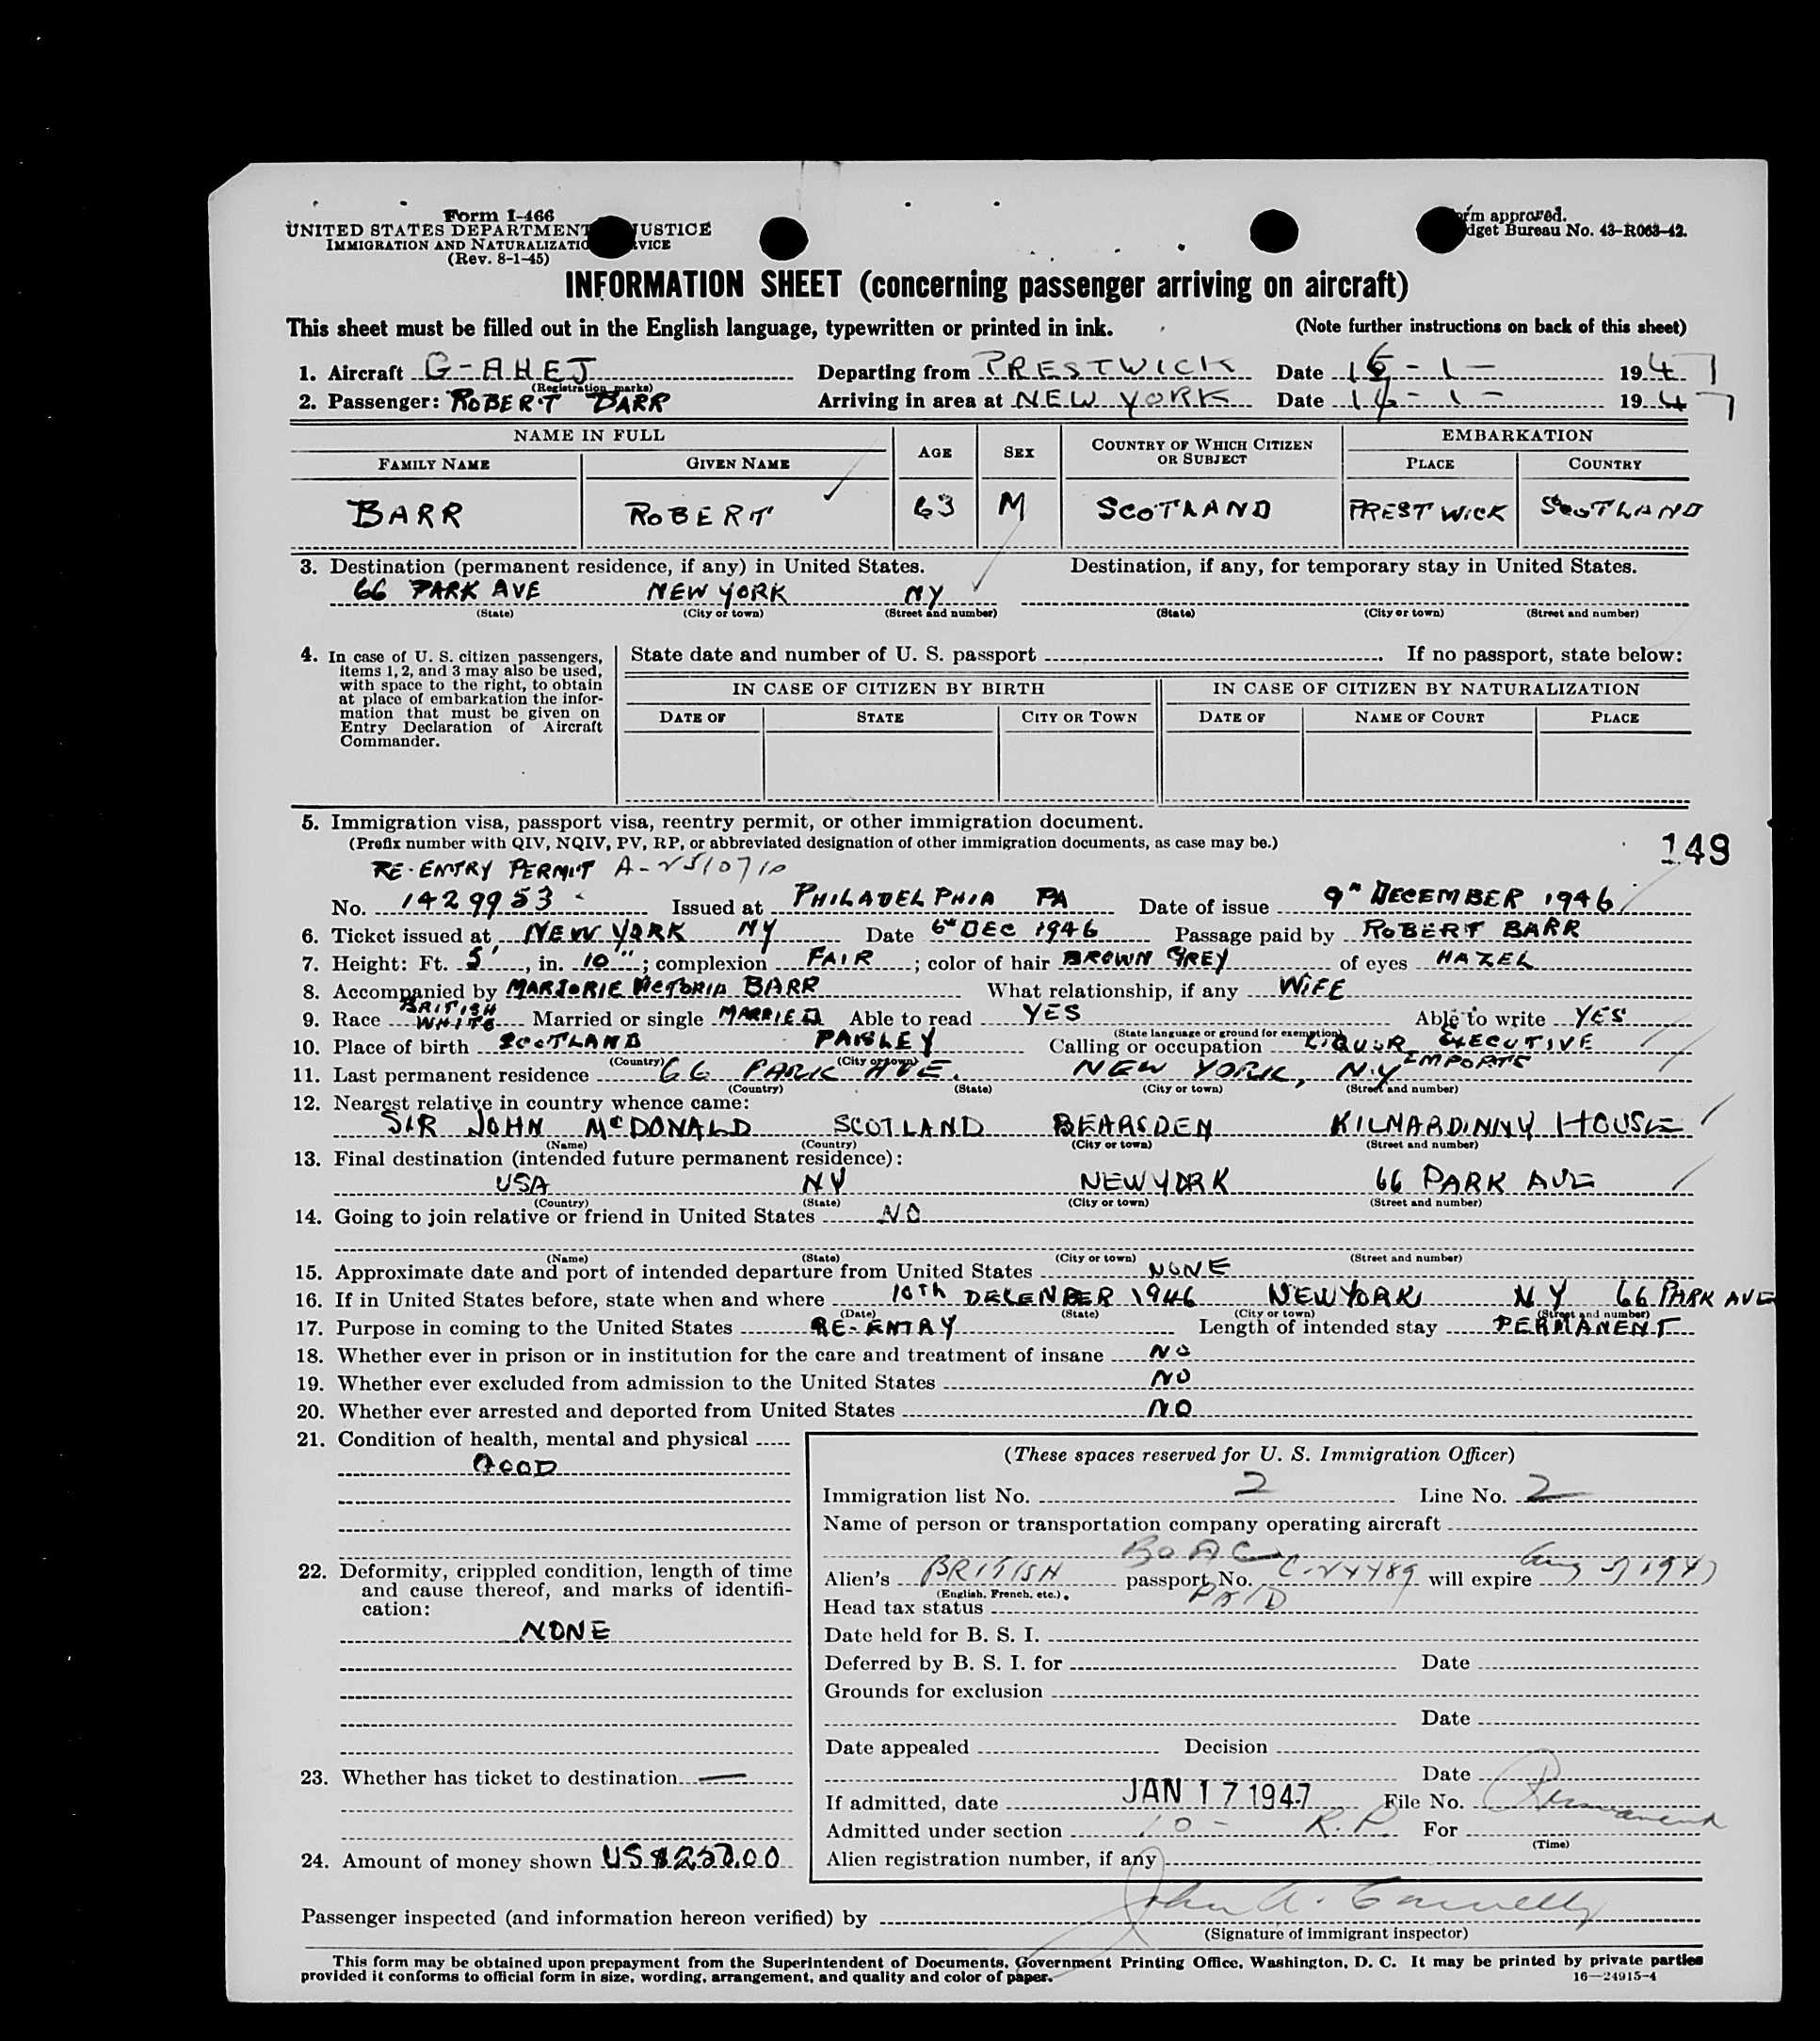 Form I-466
UNITED STATES DEPARTMENT JUSTICE
IMMIGRATION AND NATURALIZATIO RVICE
(Rev. 8-1-45)
rm approved.
dget Bureau No. 43-R063-42.
INFORMATION SHEET (concerning passenger arriving on aircraft)
This sheet must be filled out in the English language, typewritten or printed in ink. (Note further instructions on back of this sheet)
1. Aircraft G-AHEJ Departing from PRESTWICK Date -1- 1947
(Registration marks)
2. Passenger: ROBERT BARR Arriving in area at NEW YORK Date -1- 1947
NAME IN FULL AGE SEX COUNTRY OF WHICH CITIZEN OR SUBJECT EMBARKATION
FAMILY NAME GIVEN NAME PLACE COUNTRY
BARR ROBERT 63 M SCOTLAND PRESTWICK SCOTLAND
3. Destination (permanent residence, if any) in United States. Destination, if any, for temporary stay in United States.
66 PARK AVE NEW YORK NY
(State) (City or town) (Street and number) (State) (City or town) (Street and number)
4. In case of U. S. citizen passengers,
items 1, 2, and 3 may also be used,
with space to the right, to obtain
at place of embarkation the infor-
mation that must be given on
Entry Declaration of Aircraft
Commander.
State date and number of U. S. passport . If no passport, state below:
IN CASE OF CITIZEN BY BIRTH IN CASE OF CITIZEN BY NATURALIZATION
DATE OF STATE CITY OR TOWN DATE OF NAME OF COURT PLACE
5. Immigration visa, passport visa, reentry permit, or other immigration document.
(Prefix number with QIV, NQIV, PV, RP, or abbreviated designation of other immigration documents, as case may be.)
149
RE-ENTRY PERMIT A-2510710
No. 1429953 Issued at PHILADELPHIA PA Date of issue 9th DECEMBER 1946
6. Ticket issued at NEW YORK NY Date 6th DEC 1946 Passage paid by ROBERT BARR
7. Height: Ft. 5', in. 10"; complexion FAIR; color of hair BROWN GREY of eyes HAZEL
8. Accompanied by MARJORIE VICTORIA BARR What relationship, if any WIFE
BRITISH
9. Race WHITE Married or single MARRIED Able to read YES Able to write YES
(State language or ground for exemption)
10. Place of birth SCOTLAND PAISLEY Calling or occupation LIQUOR EXECUTIVE
(Country) (City or town) IMPORTS
11. Last permanent residence 66 PARK AVE. NEW YORK, N.Y
(Country) (State) (City or town) (Street and number)
12. Nearest relative in country whence came:
SIR JOHN McDONALD SCOTLAND BEARSDEN KILMARDINNY HOUSE
(Name) (Country) (City or town) (Street and number)
13. Final destination (intended future permanent residence):
USA NY NEW YORK 66 PARK AVE
(Country) (State) (City or town) (Street and number)
14. Going to join relative or friend in United States NO
(Name) (State) (City or town) (Street and number)
15. Approximate date and port of intended departure from United States NONE
16. If in United States before, state when and where 10th DECEMBER 1946 NEW YORK NY 66 PARK AVE
(Date) (State) (City or town) (Street and number)
17. Purpose in coming to the United States RE-ENTRY Length of intended stay PERMANENT
18. Whether ever in prison or in institution for the care and treatment of insane NO
19. Whether ever excluded from admission to the United States NO
20. Whether ever arrested and deported from United States NO
21. Condition of health, mental and physical
GOOD
22. Deformity, crippled condition, length of time
and cause thereof, and marks of identifi-
cation:
NONE
23. Whether has ticket to destination —
24. Amount of money shown US $250.00
(These spaces reserved for U. S. Immigration Officer)
Immigration list No. 2 Line No. 2
Name of person or transportation company operating aircraft
BOAC
Alien's BRITISH passport No. will expire Aug 1947
(English, French, etc.)
Head tax status PAID
Date held for B. S. I.
Deferred by B. S. I. for Date
Grounds for exclusion
Date
Date appealed Decision
Date
If admitted, date JAN 17 1947 File No.
Admitted under section 10- R.P. For Permanent
(Time)
Alien registration number, if any
Passenger inspected (and information hereon verified) by John A. Connelly
(Signature of immigrant inspector)
This form may be obtained upon prepayment from the Superintendent of Documents, Government Printing Office, Washington, D. C. It may be printed by private parties
provided it conforms to official form in size, wording, arrangement, and quality and color of paper. 16—24915-4